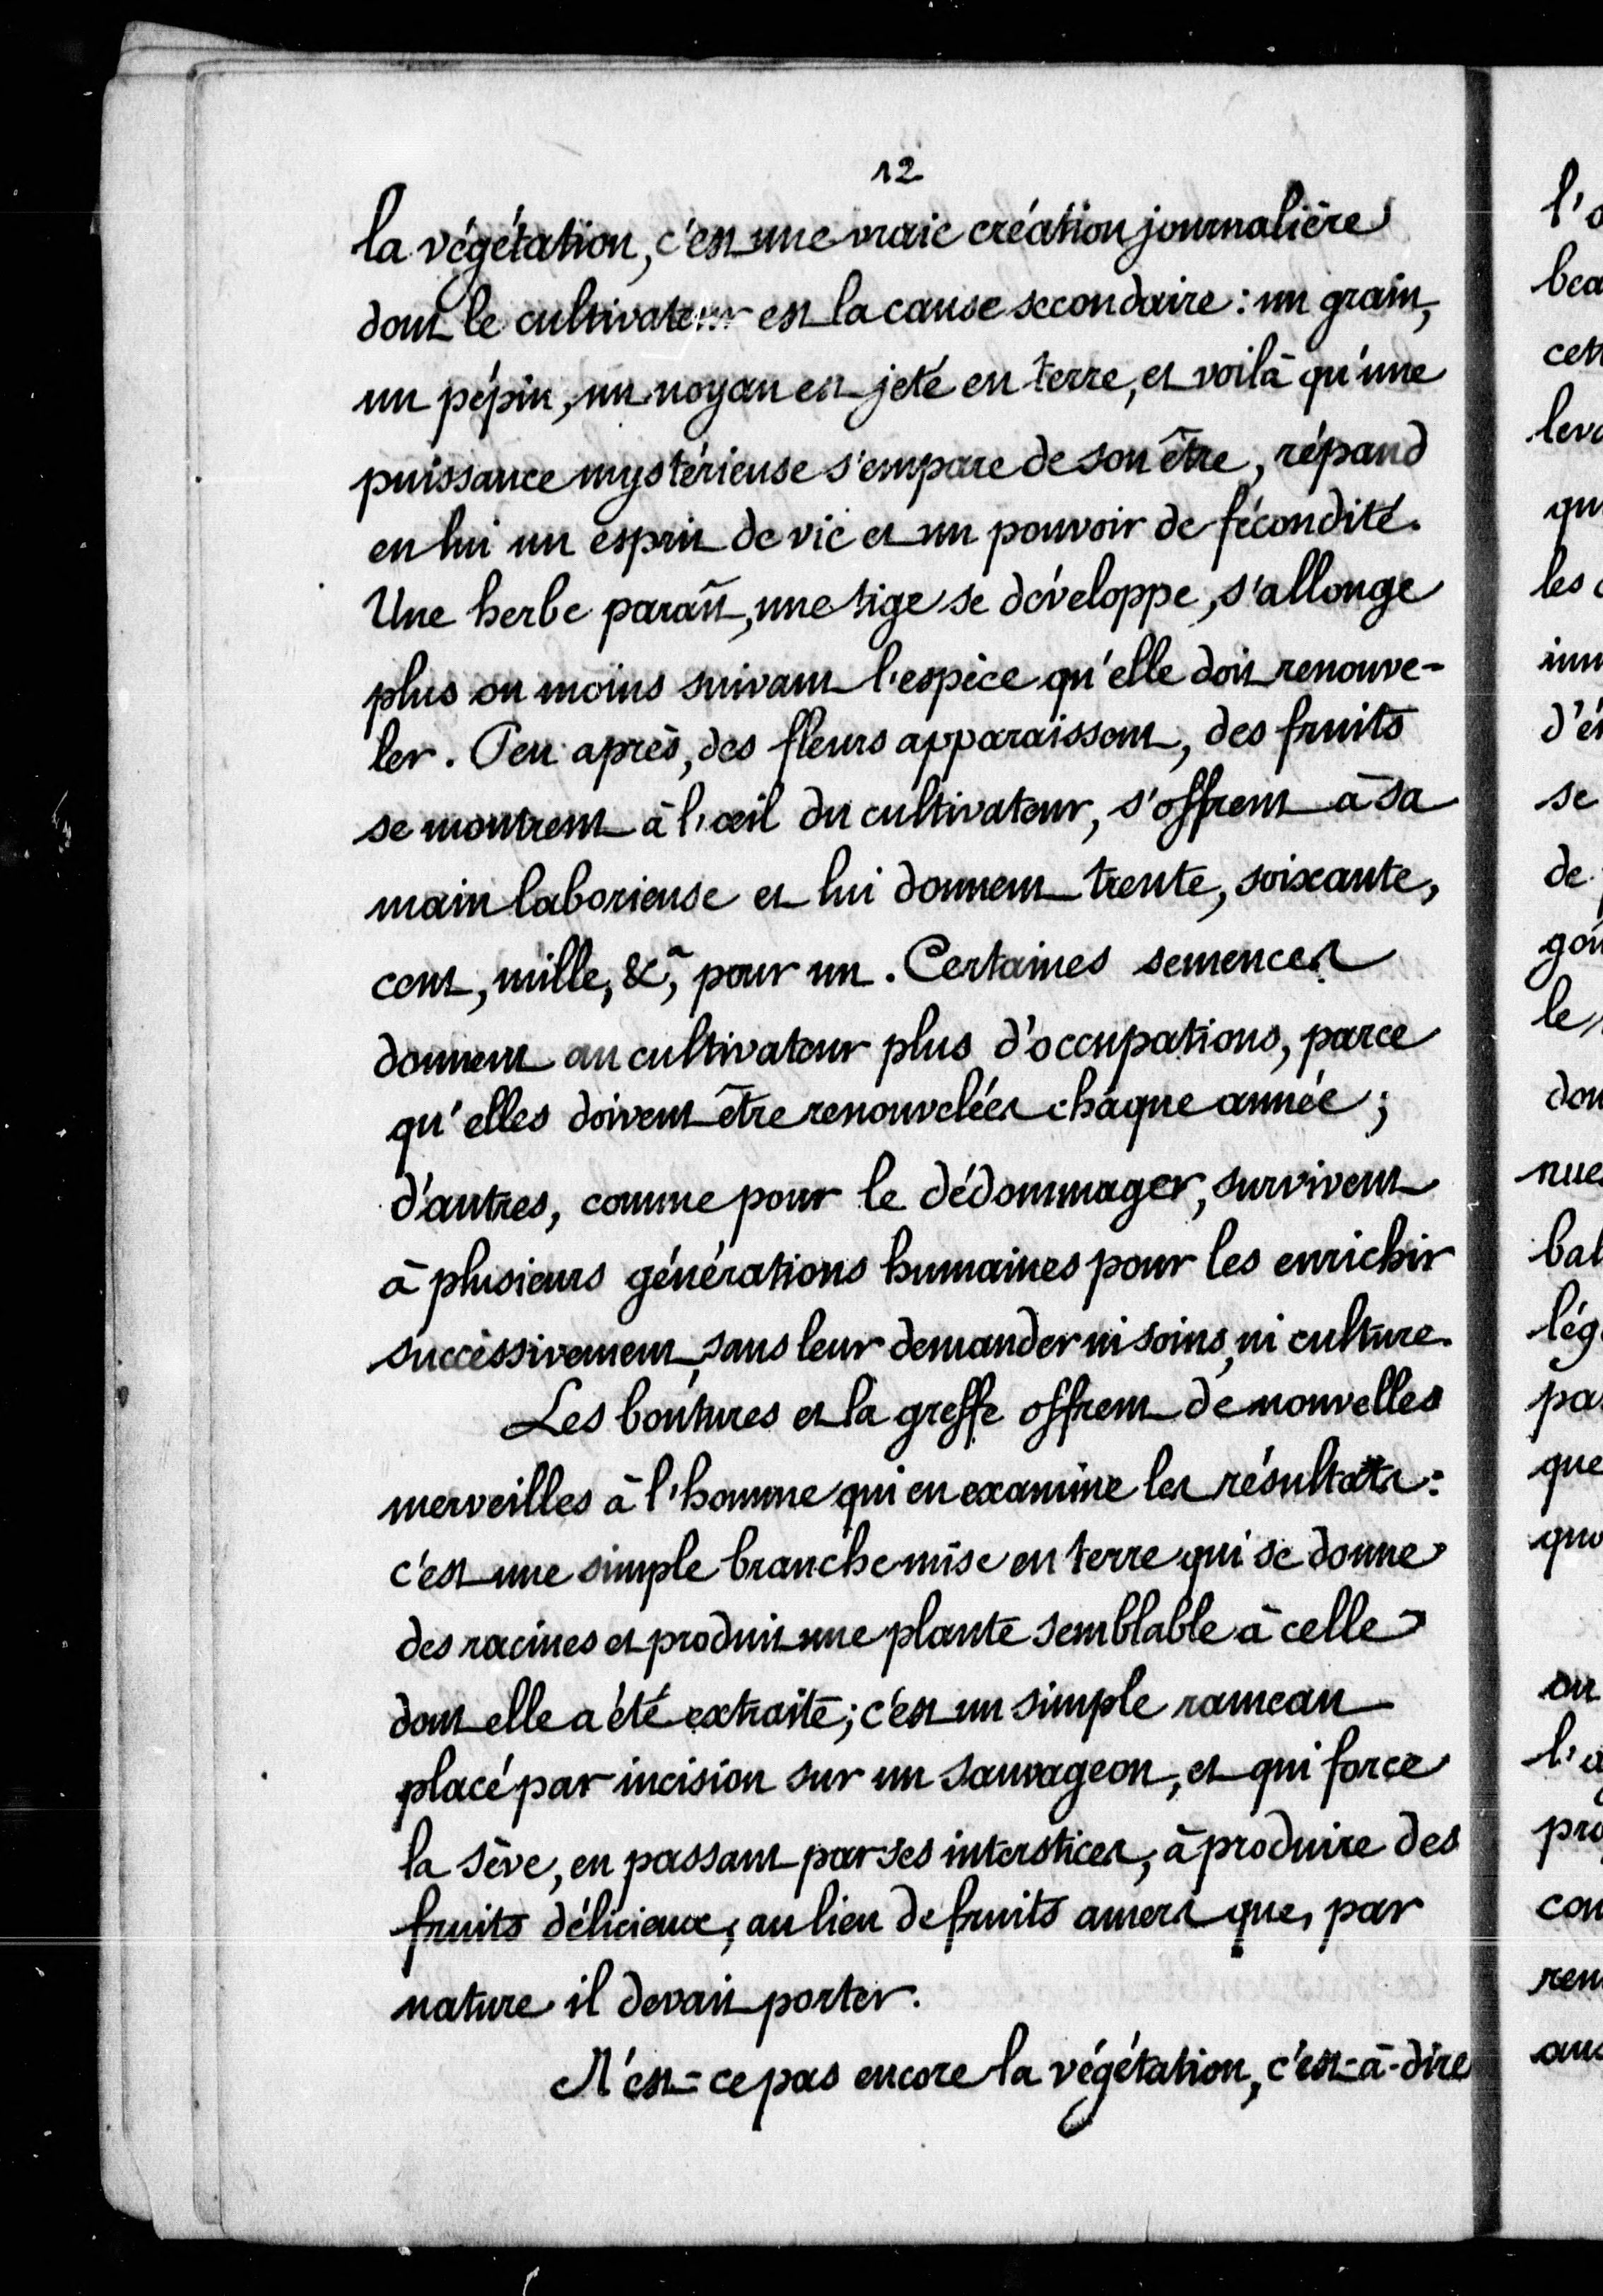 12
la végétation, c'est une vraie création journalière
dont le cultivateur est la cause secondaire : un grain,
un pépin, un noyau est jeté en terre, et voilà qu'une
puissance mystérieuse s'empare de son être, répand
en lui un esprit de vie et un pouvoir de fécondité.
Une herbe paraît, une tige se développe, s'allonge
plus ou moins suivant l'espèce qu'elle doit renouve-
ler. Peu après, des fleurs apparaissent, des fruits
se montrent à l'œil du cultivateur, s'offrent à sa
main laborieuse et lui donnent trente, soixante,
cent, mille, &a, pour un. Certaines semences
donnent au cultivateur plus d'occupations, parce
qu'elles doivent être renouvelées chaque année ;
d'autres, comme pour le dédommager, survivent
à plusieurs générations humaines pour les enrichir
successivement, sans leur demander ni soins, ni culture.
Les boutures et la greffe offrent de nouvelles
merveilles à l'homme qui en examine les résultats :
c'est une simple branche mise en terre qui se donne
des racines et produit une plante semblable à celle
dont elle a été extraite ; c'est un simple rameau
placé par incision sur un sauvageon, et qui force
la sève, en passant par ses interstices, à produire des
fruits délicieux, au lieu de fruits amers que, par
nature il devait porter.
N'est-ce pas encore la végétation, c'est-à-dire